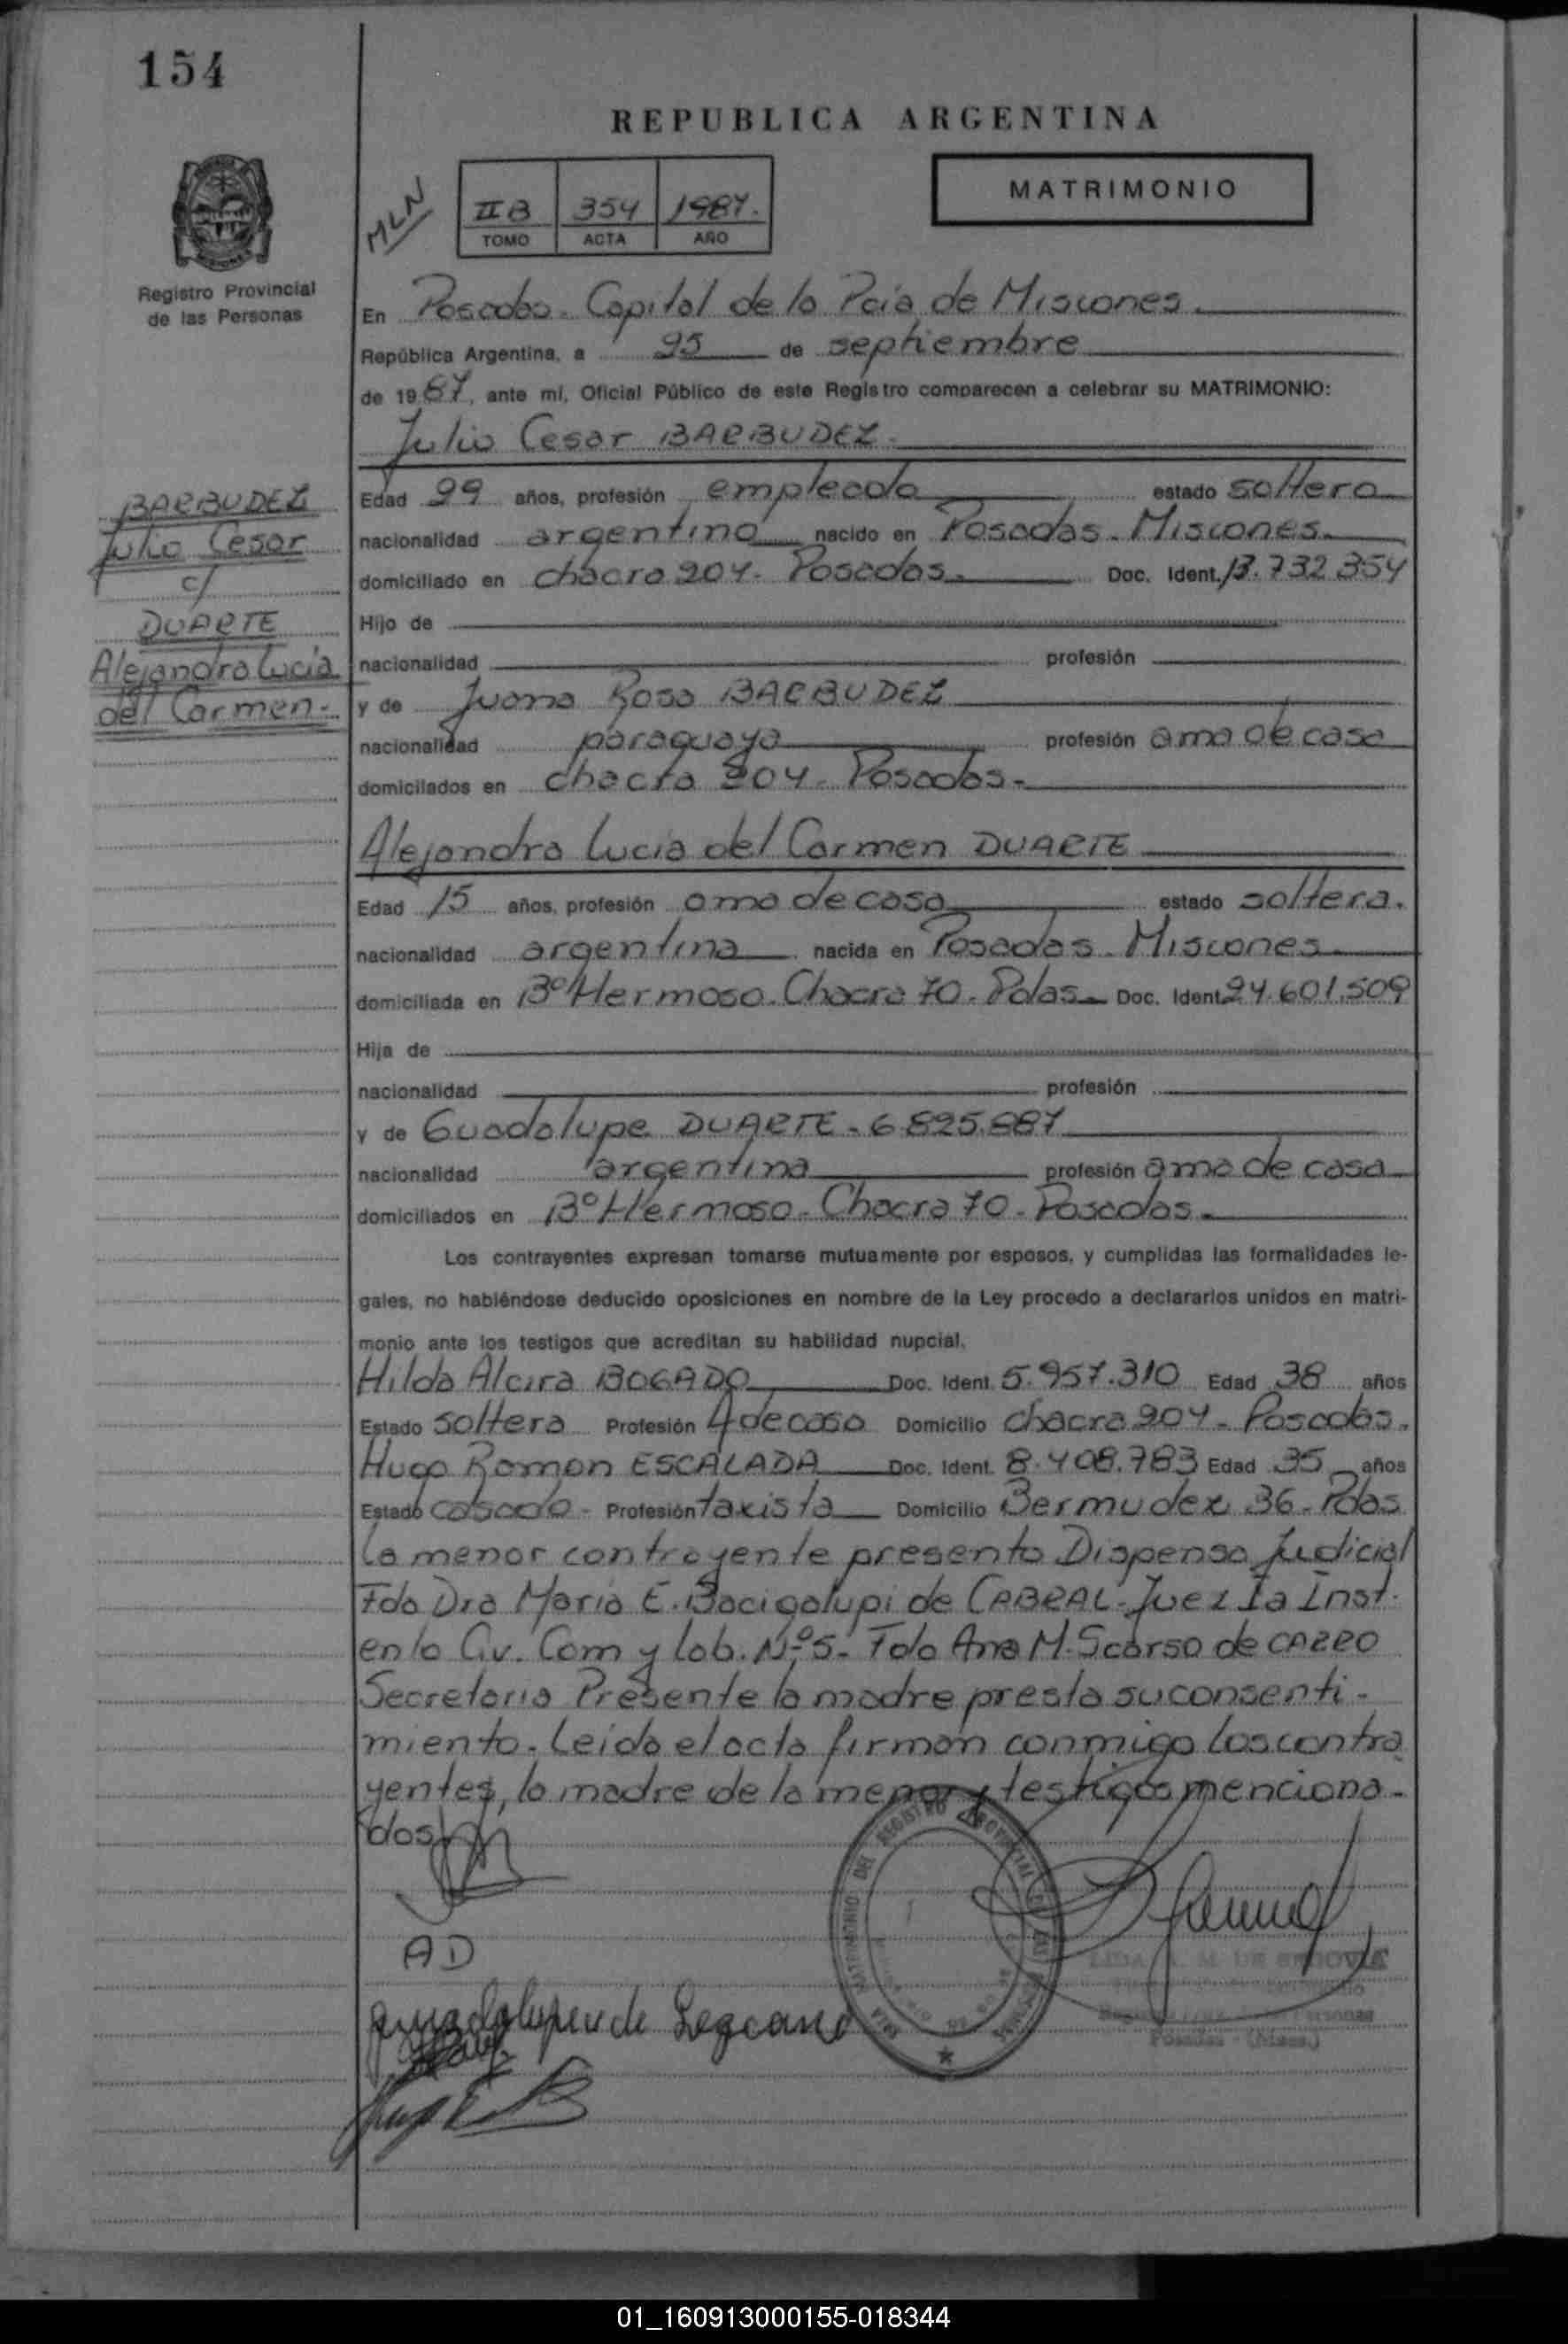 154
REPUBLICA ARGENTINA
MATRIMONIO
MLN
II B 354 1987.
TOMO ACTA AÑO
Registro Provincial
de las Personas
En Posadas. Capital de la Pcia de Misiones
República Argentina, a 25 de septiembre
de 1987, ante mí, Oficial Público de este Registro comparecen a celebrar su MATRIMONIO:
Julio Cesar BARBUDEZ
BARBUDEZ
Julio Cesar
c/
DUARTE
Alejandra Lucia
del Carmen.-
Edad 29 años, profesión empleado estado soltero
nacionalidad argentino nacido en Posadas. Misiones.
domiciliado en chacra 204. Posadas. Doc. Ident. 13.732.354
Hijo de
nacionalidad profesión
y de Juana Rosa BARBUDEZ
nacionalidad paraguaya profesión ama de casa
domiciliados en chacra 204. Posadas.-
Alejandra Lucia del Carmen DUARTE
Edad 15 años, profesión ama de casa estado soltera.
nacionalidad argentina nacida en Posadas. Misiones
domiciliada en Bº Hermoso. Chacra 70. Pdas. Doc. Ident 24.601.509
Hija de
nacionalidad profesión
y de Guadalupe DUARTE - 6.825.887
nacionalidad argentina profesión ama de casa
domiciliados en Bº Hermoso. Chacra 70. Posadas.
Los contrayentes expresan tomarse mutuamente por esposos, y cumplidas las formalidades le-
gales, no habiéndose deducido oposiciones en nombre de la Ley procedo a declararlos unidos en matri-
monio ante los testigos que acreditan su habilidad nupcial.
Hilda Alcira BOGADO Doc. Ident. 5.957.310 Edad 38 años
Estado soltera Profesión A de casa Domicilio chacra 204 - Posadas.
Hugo Ramon ESCALADA Doc. Ident. 8.408.783 Edad 35 años
Estado casado - Profesión taxista Domicilio Bermudez 36 - Pdas
La menor contrayente presenta Dispensa Judicial
Fdo Dra Maria E. Bacigalupi de CABRAL - Juez Ia Inst.
en lo Civ. Com y Lab. Nº 5. Fdo Ana M. Scarso de
Secretaria Presente la madre presta su consenti-
miento. Leida el acta firman conmigo los contra
yentes, la madre de la menor y testigos menciona-
dos
AD
Guadalupe de Lezcano
DE SEGOVIA
Posadas - (Mnes.)
01_160913000155-018344